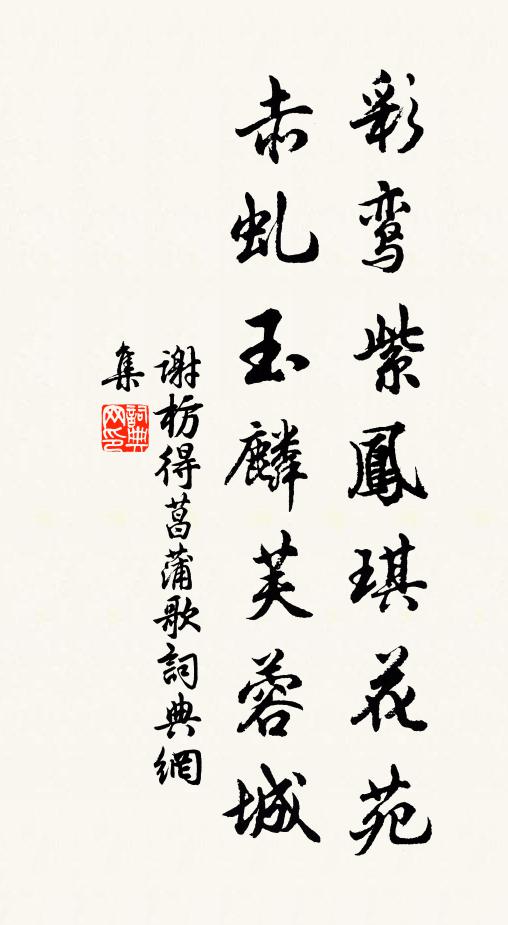 彩鸾紫鳳琪花苑
赤虬玉麟芙蓉城
謝枋得菖蒲歌詞典網
集
詞典网印